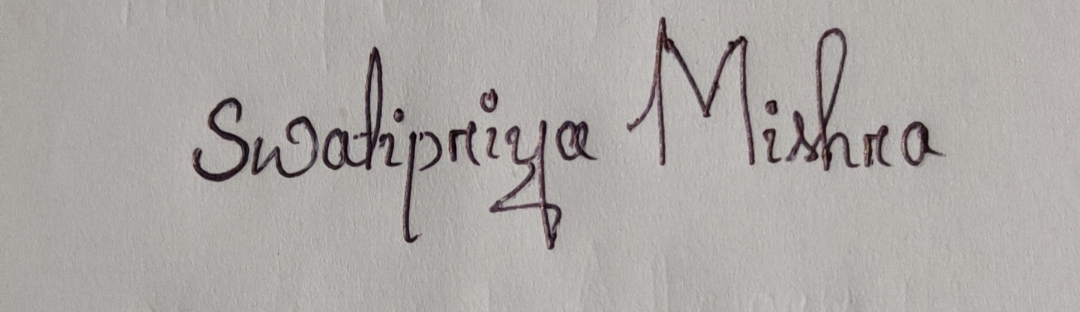 Swatipriya Mishra